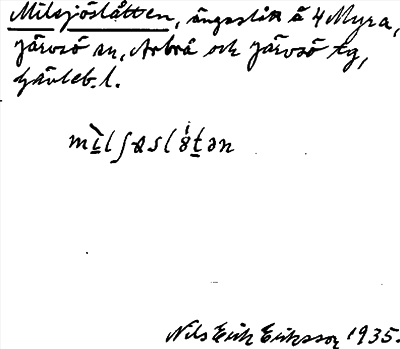 Milsjöslåtten, ängsslik å 4 Myra,
Järvsö sn, Arbrå och Järvsö tg,
Gävleb. l.
mìlʃøslåtən
Nils Erik Eriksson 1935.